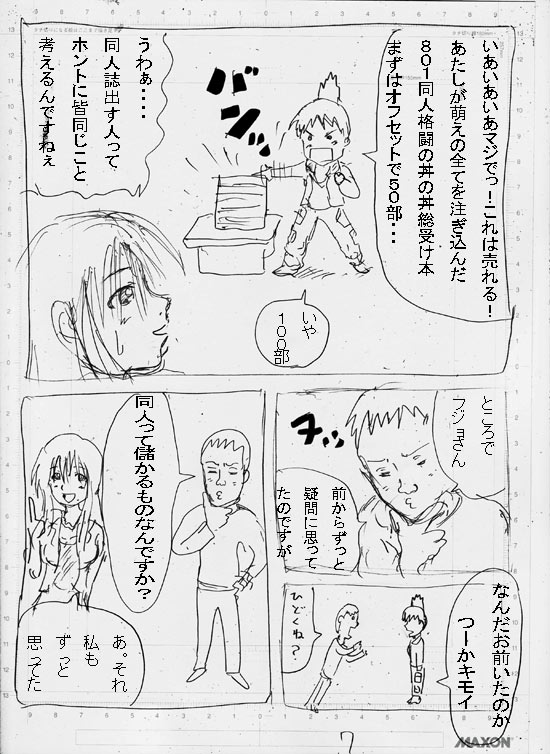 いあいあいあマジでっ！これは売れる！
あたしが萌えの全てを注ぎ込んだ
８０１同人格闘の丼の丼総受け本
まずはオフセットで５０部・・・
バ
バンッ
いや
１００部
うわぁ・・・
同人誌出す人って
ホントに皆同じこと
考えるんですねぇ
ところで
フジョさん
ヌッ
前からずっと
疑問に思って
たのですが
なんだお前いたのか
つーかキモイ
ひどくね？
同人って儲かるものなんですか？
あ。それ
私も
ずっと
思ってた
7
MAXON